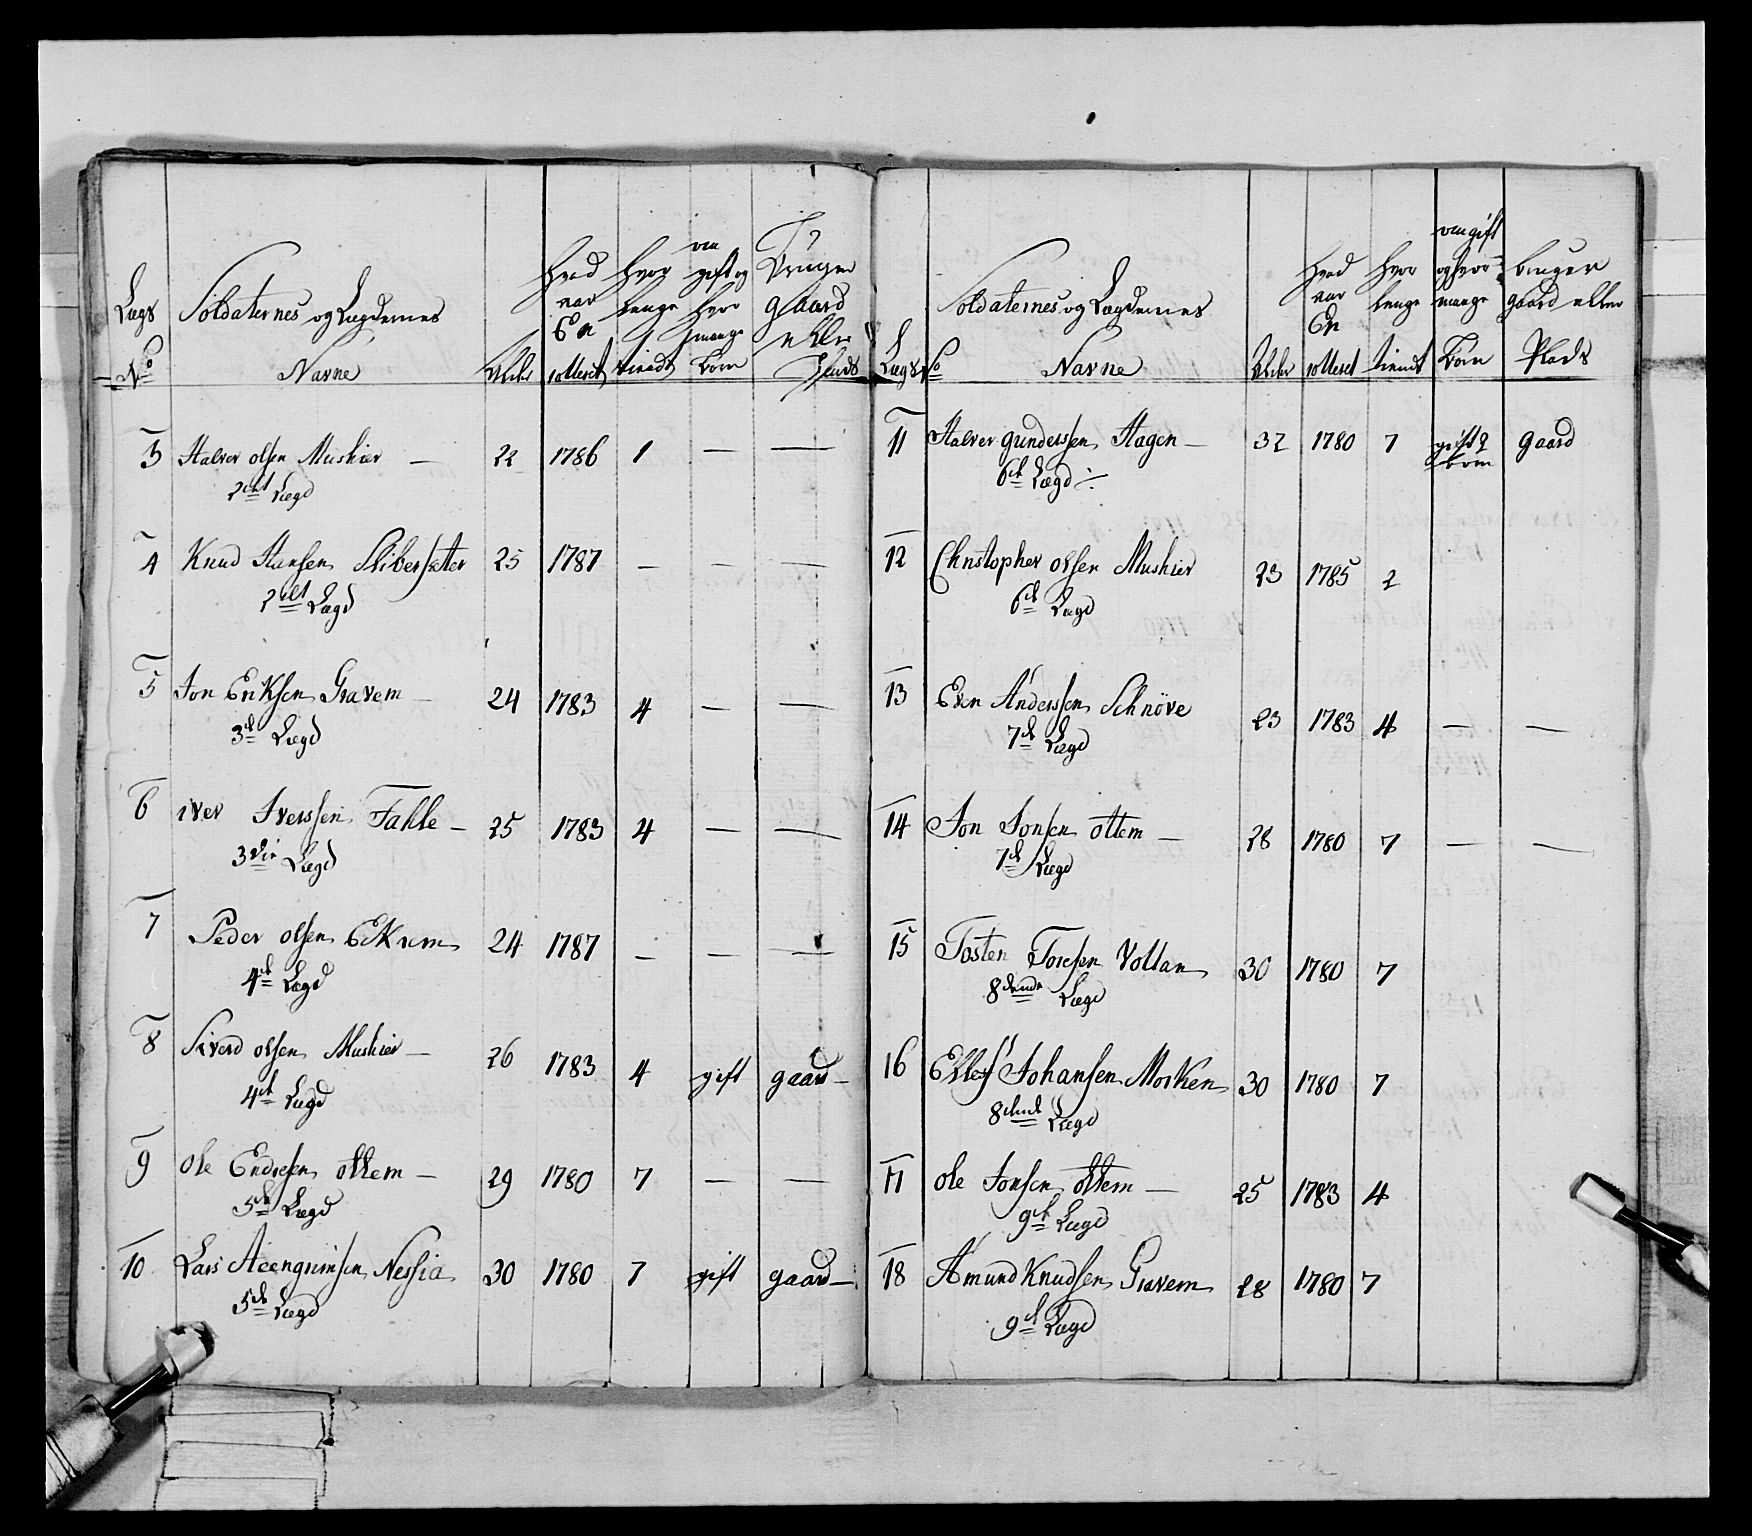 Lægs
No
Soldaternes og Lægdernes
Navne
Alder
hvad
aar
En
rolleret
hvor
lenge
tiendt
om
gift og
hvor
mange
born
Bruger
gaard
eller
Plads
3 Halver olsen Muskier — 22 1786 1 — —
2det Lægd
4 Knud Hansen Sliberseter 25 1787 — — —
2det Lægd
5 Jon Eriksen Gravem — 24 1783 4 — —
3de Lægd
6 iver Iverssen Fahle — 25 1783 4 — —
3die Lægd
7 Peder olsen Eckrem 24 1787 — — —
4de Lægd
8 Siverd olsen Muskier — 26 1783 4 gift gaard —
4de Lægd
9 ole Endresen ottem — 29 1780 7 — —
5de Lægd
10 Lars Aeengrimsen Nessia 30 1780 7 gift gaard —
5de Lægd
Lægs No
Soldaternes og Lægdernes
Navne
Alder
hvad
aar
En
rolleret
hvor
lenge
tiendt
om gift
og hvor
mange
born
bruger
gaard eller
Plads
11 Halver gunderssen Hagen — 32 1780 7 gift 2 born gaard
6te Lægd
12 Christopher olsen Muskier 23 1785 2
6te Lægd
13 Even Anderssen Schnöve 23 1783 4 — —
7de Lægd
14 Jon Jonsen ottem — 28 1780 7 — —
7de Lægd
15 Tosten Toresen Vollan 30 1780 7
8dende Lægd
16 Ellef Johansen Morken 30 1780 7
8dende Lægd
17 ole Jonsen ottem — 25 1783 4
9de Lægd
18 Amund Knudsen Gravem 28 1780 7
9de Lægd